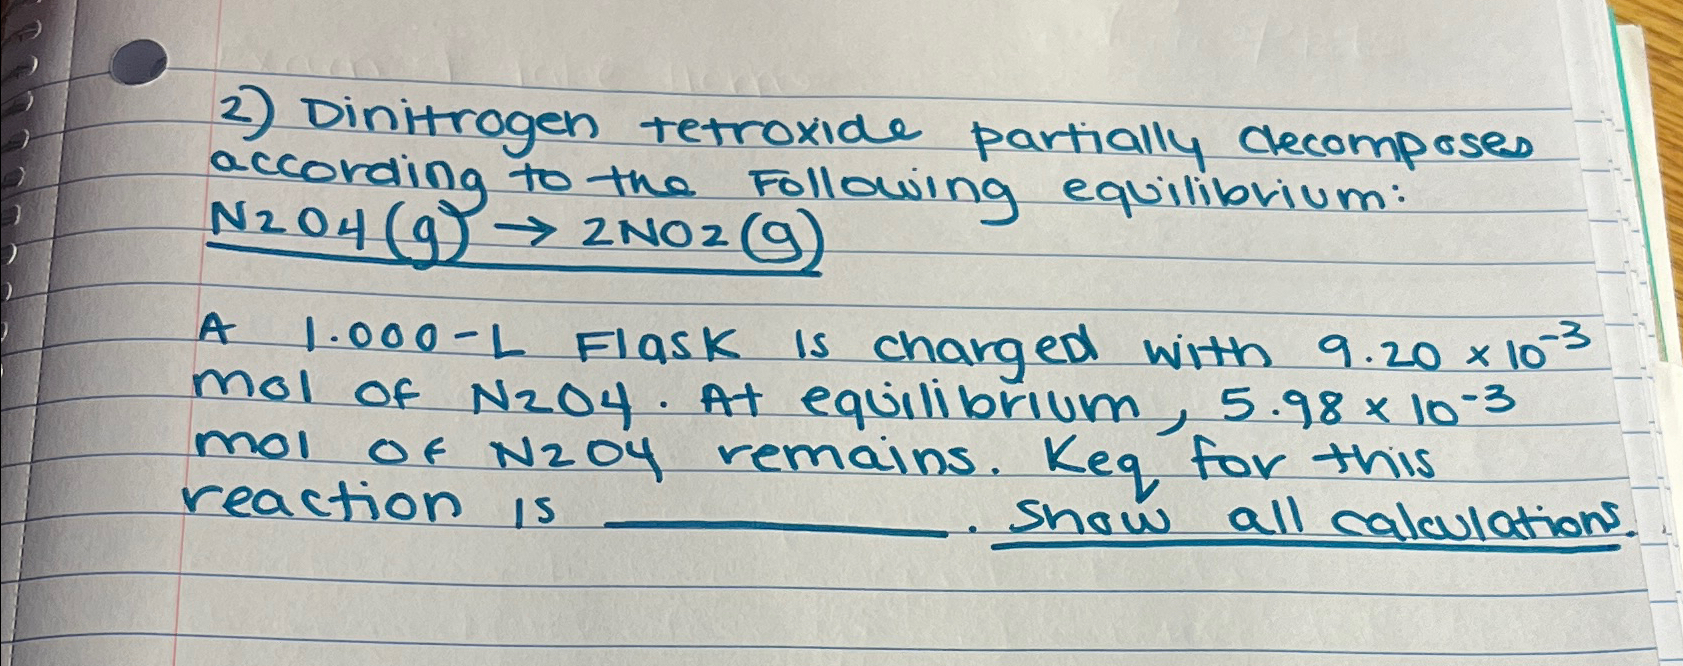 2) Dinitrogen tetroxide partially decomposes
according to the Following equilibrium:
N2O4(g) → 2NO2(g)
A 1.000-L Flask is charged with 9.20 x 10-3
mol of N2O4. At equilibrium, 5.98 x 10-3
mol of N2O4 remains. Keq for this
reaction is ________. Show all calculations.